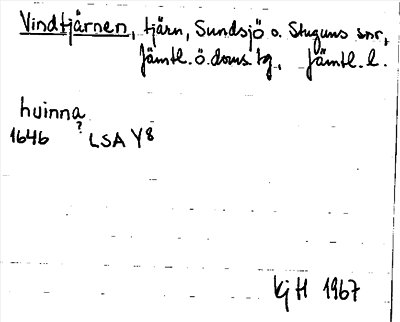 Vindtjärnen, tjärn, Sundsjö o. Stuguns snr,
Jämtl. ö. doms tg, Jämtl. l.
huinna
?
1646 LSA Y8
KjH 1967